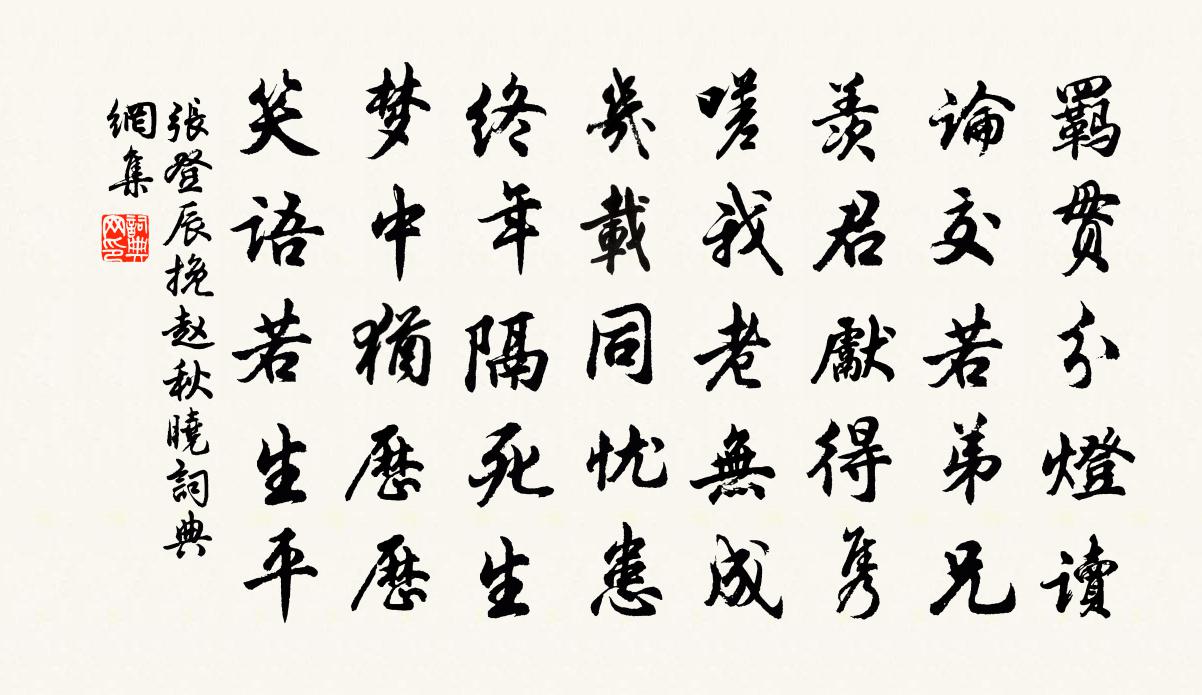 羈贯分燈讀
论交若弟兄
羨君獻得隽
嗟我老無成
幾載同忧患
终年隔死生
梦中猶歷歷
笑语若生平
張登辰挽赵秋曉詞典
網集
詞典
网印